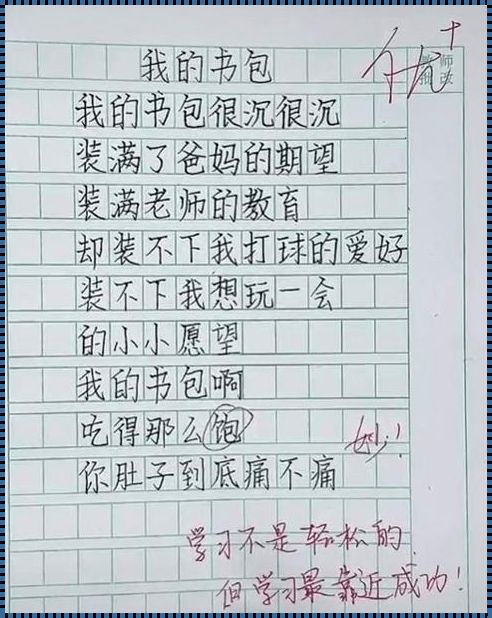 我的书包
优+
我的书包很沉很沉
装满了爸妈的期望
装满老师的教育
却装不下我打球的爱好
装不下我想玩一会
的小小愿望
我的书包啊
吃得那么饱
妙!
你肚子到底痛不痛
学习不是轻松的
但学习最靠近成功!